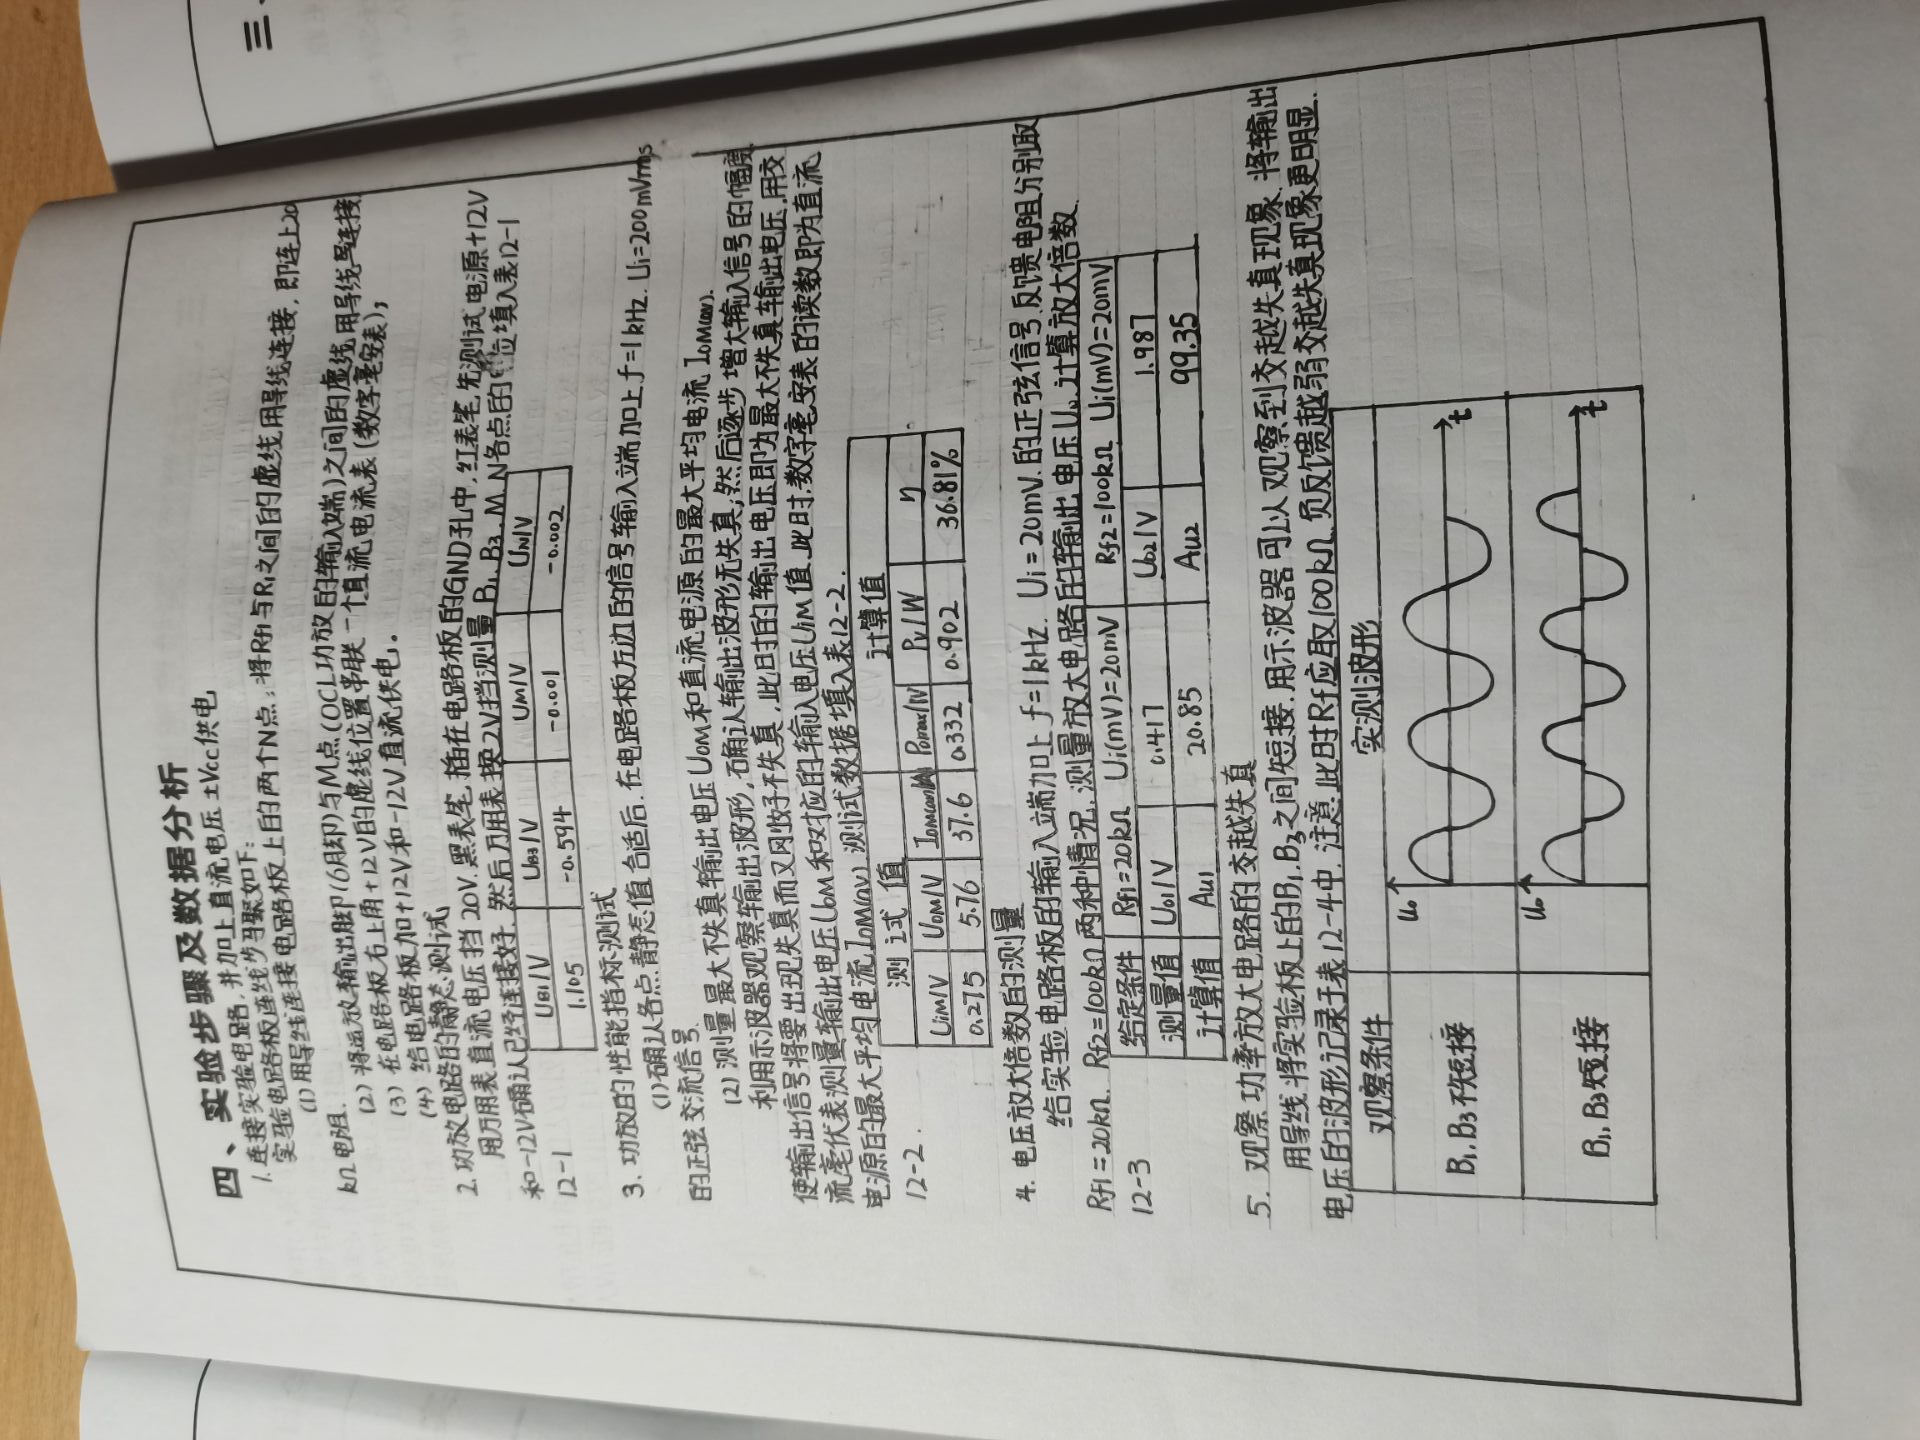 四、实验步骤及数据分析
1.连接实验电路,并加上直流电压±Vcc供电
实验电路板连线步骤如下:
(1)用导线连接电路板上的两个N点,将Rf1与R1之间的虚线用导线连接,即连上20
kΩ电阻.
(2)将运放输出脚(6脚)与M点(OCL功放的输入端)之间的虚线用导线连接
(3)在电路板右上角+12V的虚线位置串联一个直流电流表(数字毫安表);
(4)给电路板加+12V和-12V直流供电.
2.功放电路的静态测试
用万用表直流电压挡20V,黑表笔插在电路板的GND孔中,红表笔先测试电源+12V
和-12V确认已经连接好.然后万用表换2V挡测量B1、B3、M、N各点的 位填入表12-1
12-1
UB1/V UB3/V UM/V UN/V
1.105 -0.594 -0.001 -0.002
3.功放的性能指标测试
(1)确认各点静态值合适后.在电路板左边的信号输入端加上f=1kHz.Ui=200mVrms
的正弦交流信号.
(2)测量最大不失真输出电压UOM和直流电源的最大平均电流IOM(av).
利用示波器观察输出波形,确认输出波形无失真;然后逐步增大输入信号的幅度
使输出信号将要出现失真而又刚好不失真,此时的输出电压即为最大不失真输出电压.用交
流毫伏表测量输出电压UOM和对应的输入电压UiM值.此时.数字毫安表的读数即为直流
电源的最大平均电流IOM(av).测试数据填入表12-2.
12-2.
测试值 计算值
UiM/V UOM/V IOM(av)/A Pomax/W Pv/W η
0.275 5.76 37.6 0.332 0.902 36.81%
4.电压放大倍数的测量
给实验电路板的输入端加上f=1kHz.Ui=20mV.的正弦信号.反馈电阻分别取
Rf1=20kΩ.Rf2=100kΩ两种情况,测量放大电路的输出电压Uo.计算放大倍数.
12-3
给定条件 Rf1=20kΩ Ui(mV)=20mV Rf2=100kΩ Ui(mV)=20mV
测量值 Uo1/V 0.417 Uo2/V 1.987
计算值 Au1 20.85 Au2 99.35
5.观察功率放大电路的交越失真
用导线将实验板上的B1.B3之间短接.用示波器可以观察到交越失真现象.将输出
电压的波形记录于表12-4中.注意此时Rf应取100kΩ.负反馈越弱交越失真现象更明显.
观察条件 实测波形
uo
B1.B3不短接
t
uo
B1.B3短接
t
三、